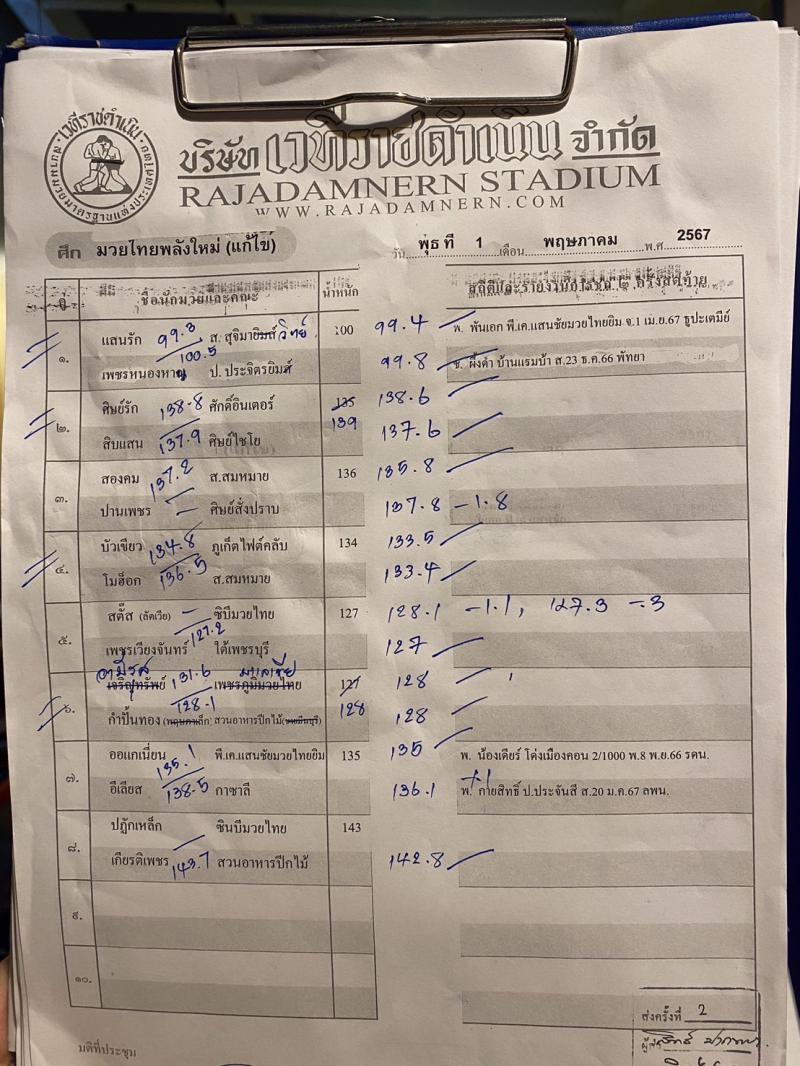 เวทีราชดำเนิน
สนามมวยมาตรฐานแห่งประเทศไทย
บริษัท เวทีราชดำเนิน จำกัด
RAJADAMNERN STADIUM
WWW.RAJADAMNERN.COM
ศึก มวยไทยพลังใหม่ (แก้ไข) วัน พุธ ที่ 1 เดือน พฤษภาคม พ.ศ 2567
ชื่อนักมวยและคณะ น้ำหนัก
๑. แสนรัก 99.3 ส. สุจิมายิมส์ วิทย์ 100 99.4 พ. พันเอก พี.เค.แสนชัยมวยไทยยิม จ.1 เม.ย.67 ธูปะเตมีย์
เพชรหนองหาญ 100.5 ป. ประจิตรยิมส์ 99.8 ช. ผึ้งดำ บ้านแรมบ้า ส.23 ธ.ค.66 พัทยา
๒. ศิษย์รัก 138.8 ศักดิ์อินเตอร์ 135 139 138.6
สิบแสน 137.9 ศิษย์ไชโย 137.6
๓. สองคม 137.2 ส.สมหมาย 136 135.8
ปานเพชร – ศิษย์สั่งปราบ 137.8 -1.8
๔. บัวเขียว 134.8 ภูเก็ตไฟต์คลับ 134 133.5
โมฮ็อก 136.5 ส.สมหมาย 133.4
๕. สตั๊ส (ลัตเวีย) – ซิบีมวยไทย 127 128.1 -1.1, 127.3 -.3
เพชรเวียงจันทร์ 127.2 ใต้เพชรบุรี 127
มาเลเซีย
๖. เจริญทรัพย์ 131.6 เพชรภูมิมวยไทย 127 128 128
กำปั้นทอง 128.1 สวนอาหารปีกไม้ 128
๗. ออแกเนี่ยน 135.1 พี.เค.แสนชัยมวยไทยยิม 135 135 พ. น้องเดียร์ โด่งเมืองคอน 2/1000 พ.8 พ.ย.66 รดน.
อีเลียส 138.5 กาซาลี 136.1 +1 พ. กายสิทธิ์ ป.ประจันสี ส.20 ม.ค.67 ลพน.
๘. ปฏักเหล็ก – ซินบีมวยไทย 143
เกียรติเพชร 143.7 สวนอาหารปีกไม้ 142.8
๙.
๑๐.
ส่งครั้งที่ 2
มติที่ประชุม